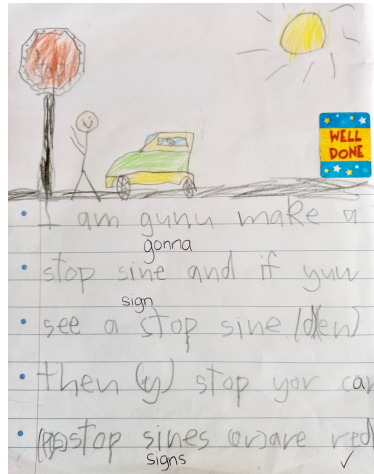 WELL
DONE
I am gunu make a
gonna
stop sine and if yuw
sign
see a stop sine (den)
then (y) stop yor car
stop sines (or) are red
signs